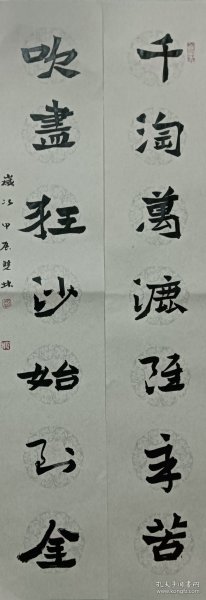 千淘萬漉雖辛苦
吹盡狂沙始到金
歲次甲辰
孔夫子旧书网